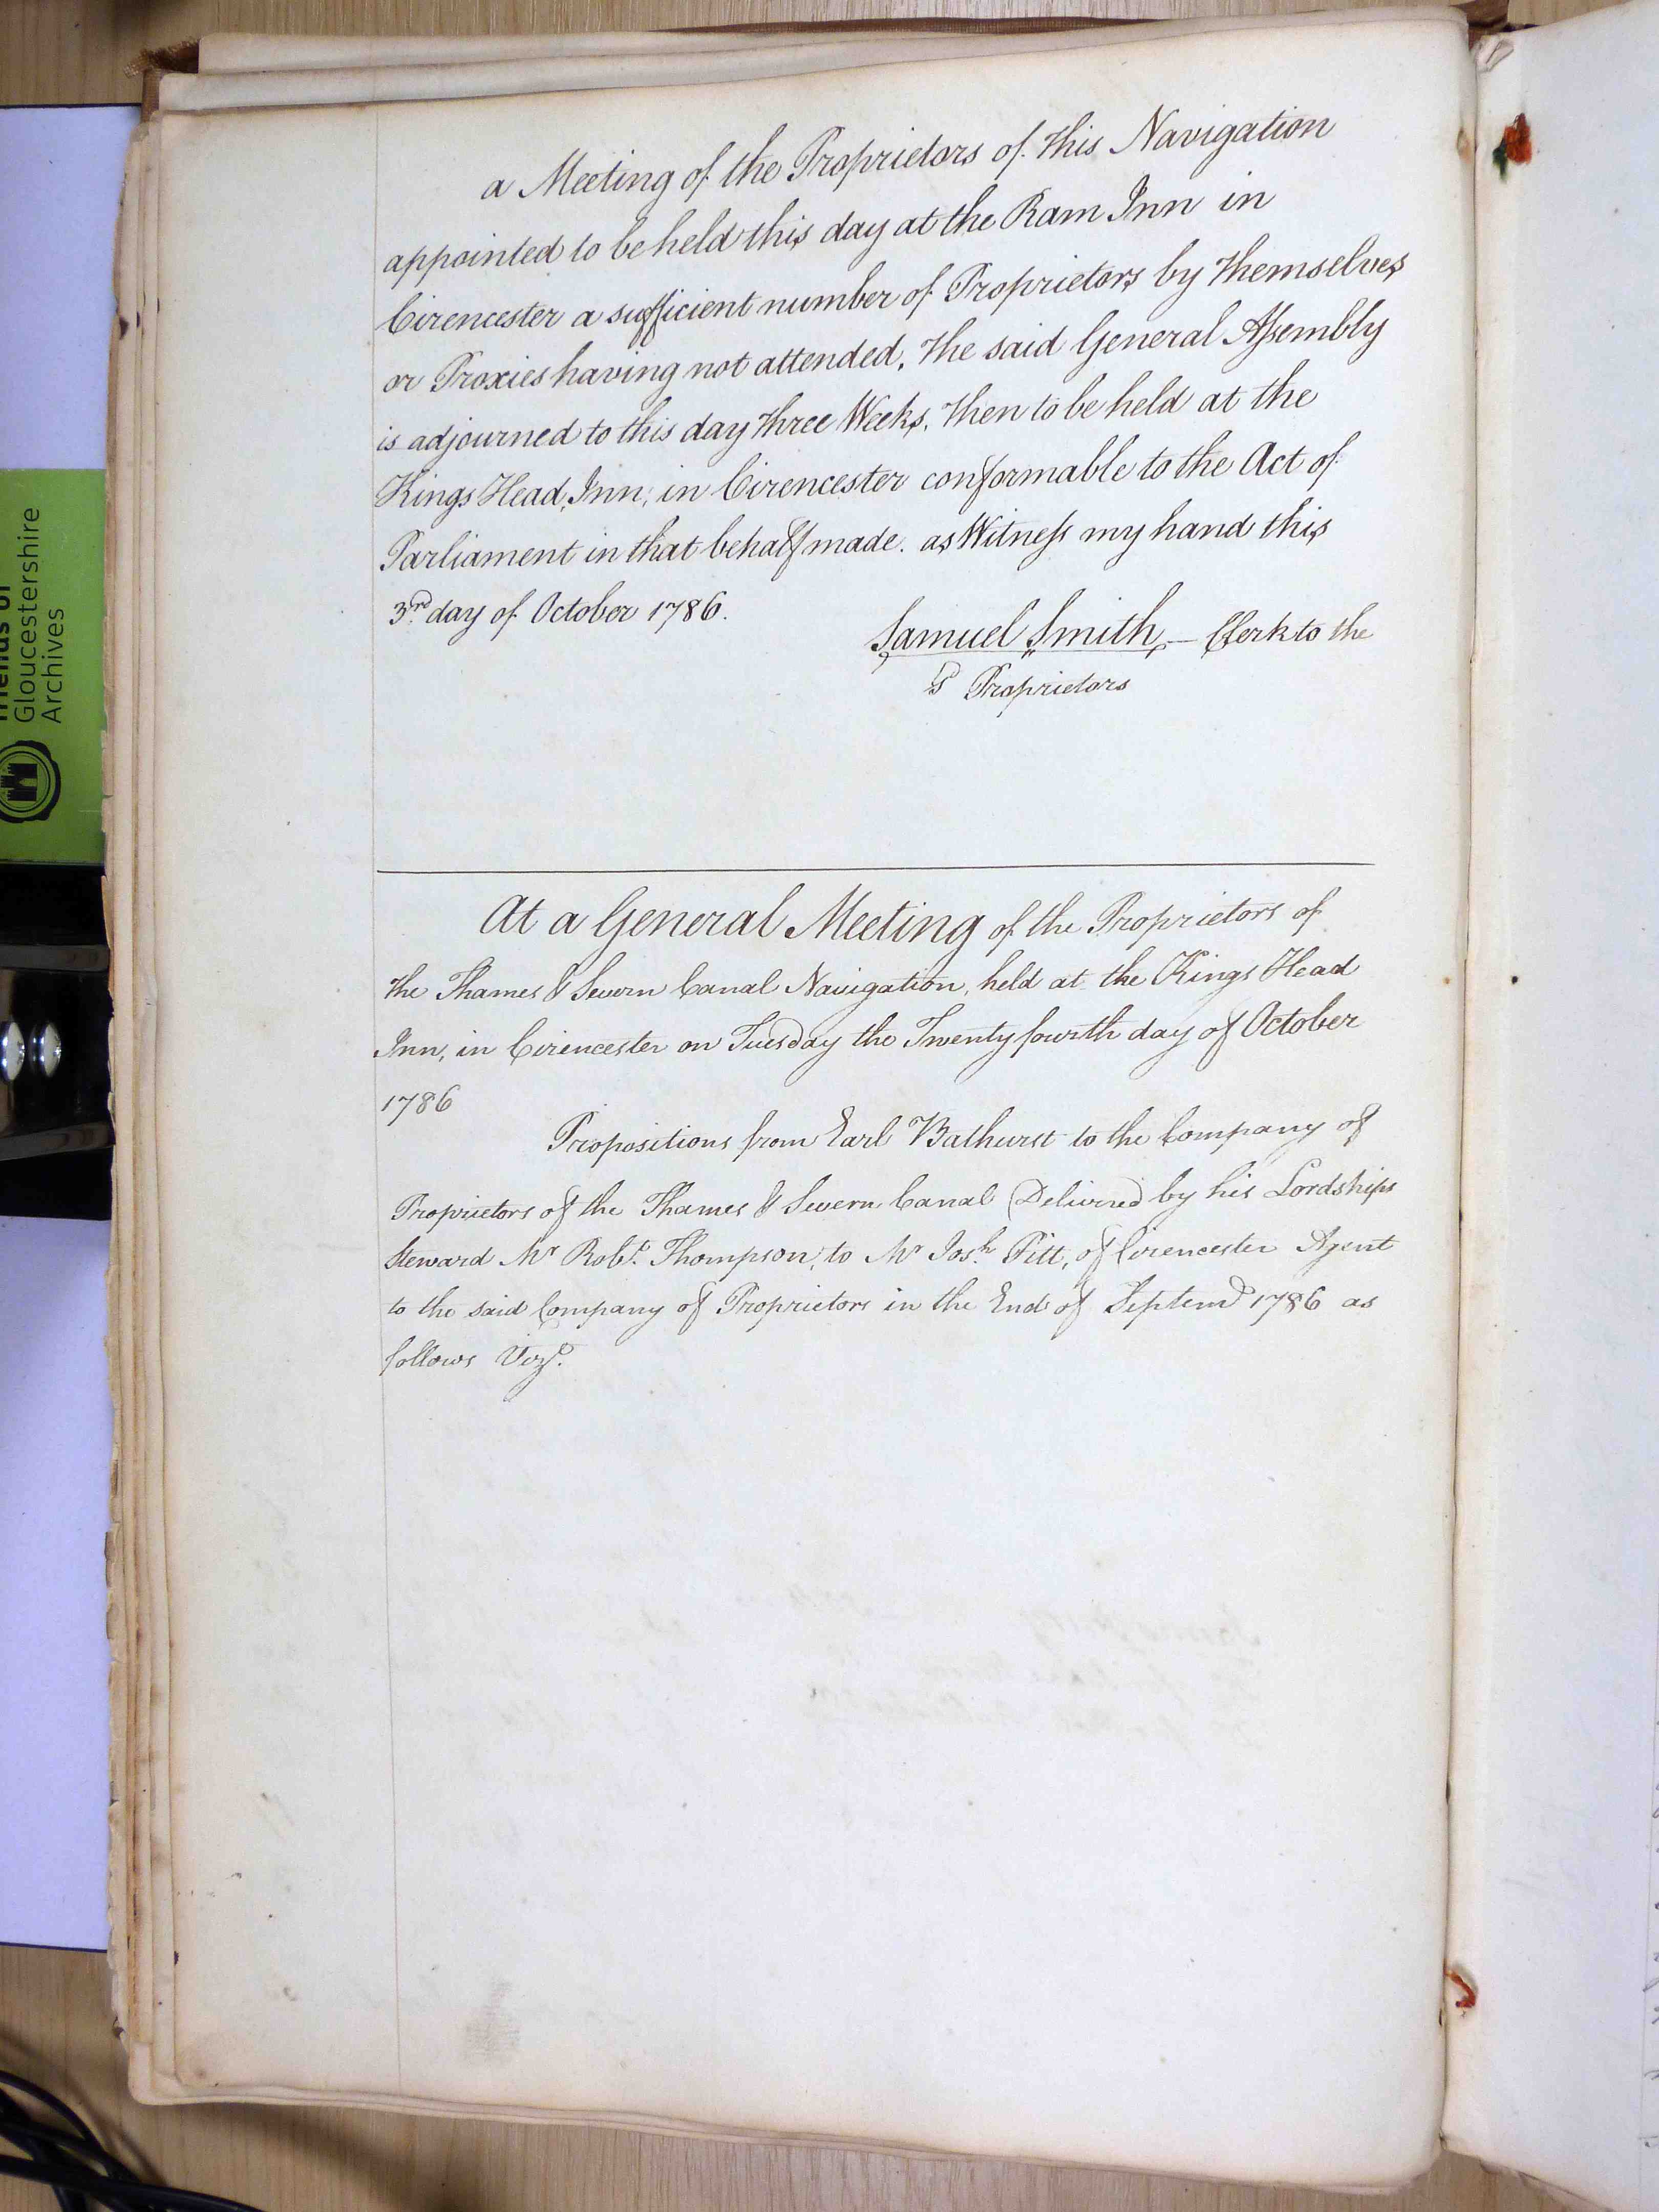 a Meeting of the Proprietors of this Navigation
appointed to be held this day at the Ram Inn in
Cirencester a sufficient number of Proprietors by themselves
or Proxies having not attended, the said General Assembly
is adjourned to this day three Weeks, then to be held at the
Kings Head, Inn, in Cirencester conformable to the Act of
Parliament in that behalf made. as Witness my hand this
3rd day of October 1786.
Samuel Smith, — Clerk to the
sd Proprietors
At a General Meeting of the Proprietors of
the Thames & Severn Canal Navigation, held at the Kings Head
Inn, in Cirencester on Tuesday the Twenty fourth day of October
1786
Propositions from Earl Bathurst to the Company of
Proprietors of the Thames & Severn Canal (Deliverd by his Lordships
Steward Mr Robt. Thompson, to Mr Josh. Pitt, of Cirencester Agent
to the said Company of Proprietors in the End of Septemr 1786 as
follows Vizt.
Friends of
Gloucestershire
Archives